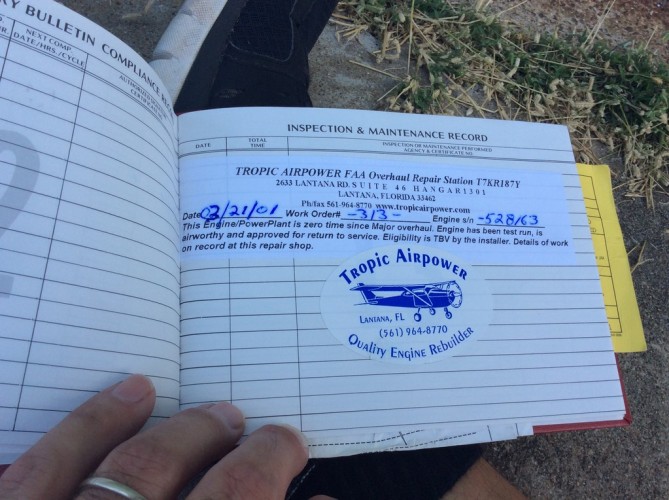 RY BULLETIN COMPLIANCE REC
NEXT COMP.
DATE/HRS./CYCLE
AUTHORIZED
CERTIFICATE
INSPECTION & MAINTENANCE RECORD
DATE
TOTAL TIME
INSPECTION OR MAINTENANCE PERFORMED
AGENCY & CERTIFICATE NO.
TROPIC AIRPOWER FAA Overhaul Repair Station T7KR187Y
2633 LANTANA RD. SUITE 46 HANGAR1301
LANTANA, FLORIDA 33462
Ph/fax 561-964-8770 www.tropicairpower.com
Date 02/21/01 Work Order# -313- Engine s/n -528/63
This Engine/PowerPlant is zero time since Major overhaul. Engine has been test run, is
airworthy and approved for return to service. Eligibility is TBV by the installer. Details of work
on record at this repair shop.
TROPIC AIRPOWER
LANTANA, FL
(561) 964-8770
QUALITY ENGINE REBUILDER